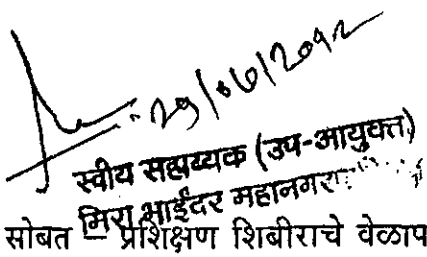 स्वीय सहाय्यक (उप-आयुक्त)
मिरा भाईंदर महानगर
सोबत – प्रशिक्षण शिबीराचे वेळाप